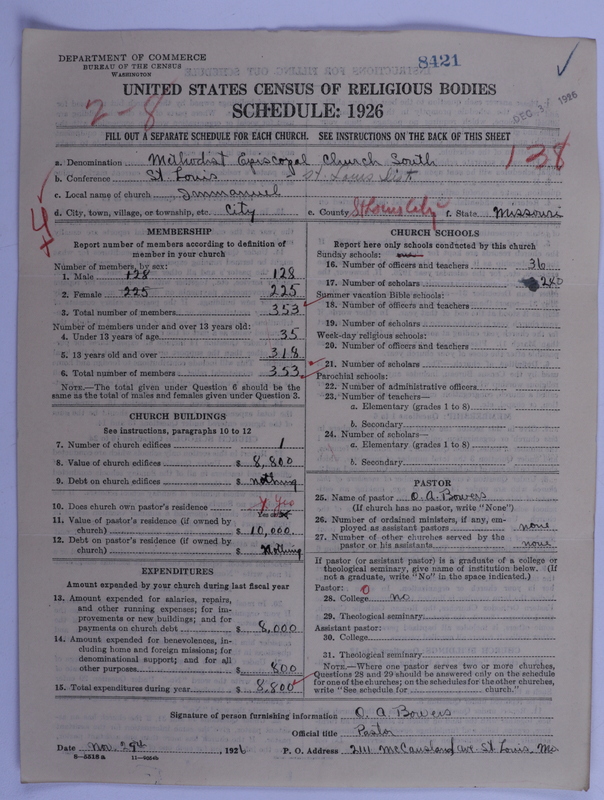 DEPARTMENT OF COMMERCE
BUREAU OF THE CENSUS
WASHINGTON
8421
DEC 3 1926
UNITED STATES CENSUS OF RELIGIOUS BODIES
2-8
SCHEDULE: 1926
FILL OUT A SEPARATE SCHEDULE FOR EACH CHURCH. SEE INSTRUCTIONS ON THE BACK OF THIS SHEET
138
a. Denomination Methodist Episcopal Church South
b. Conference St. Louis - St. Louis Dist
c. Local name of church Immanuel
d. City, town, village, or township, etc. City e. County St Louis City f. State Missouri
MEMBERSHIP
Report number of members according to definition of
member in your church
Number of members, by sex:
1. Male 128 128
2. Female 225 225
3. Total number of members 353
Number of members under and over 13 years old:
4. Under 13 years of age 35
5. 13 years old and over 318
6. Total number of members 353
NOTE.—The total given under Question 6 should be the
same as the total of males and females given under Question 3.
CHURCH BUILDINGS
See instructions, paragraphs 10 to 12
7. Number of church edifices 1
8. Value of church edifices $ 8,800
9. Debt on church edifices $ nothing
10. Does church own pastor's residence Yes
11. Value of pastor's residence (if owned by
church) $ 10,000
12. Debt on pastor's residence (if owned by
church) $ Nothing
EXPENDITURES
Amount expended by your church during last fiscal year
13. Amount expended for salaries, repairs,
and other running expenses; for im-
provements or new buildings; and for
payments on church debt $ 8,000
14. Amount expended for benevolences, in-
cluding home and foreign missions; for
denominational support; and for all
other purposes $ 800
15. Total expenditures during year $ 8,800
CHURCH SCHOOLS
Report here only schools conducted by this church
Sunday schools:
16. Number of officers and teachers 36
17. Number of scholars 240
Summer vacation Bible schools:
18. Number of officers and teachers
19. Number of scholars
Week-day religious schools:
20. Number of officers and teachers
21. Number of scholars
Parochial schools:
22. Number of administrative officers
23. Number of teachers—
a. Elementary (grades 1 to 8)
b. Secondary
24. Number of scholars—
a. Elementary (grades 1 to 8)
b. Secondary
PASTOR
25. Name of pastor O. A. Bowers
(If church has no pastor, write "None")
26. Number of ordained ministers, if any, em-
ployed as assistant pastors none
27. Number of other churches served by the
pastor or his assistants none
If pastor (or assistant pastor) is a graduate of a college or
theological seminary, give name of institution below. (If
not a graduate, write "No" in the space indicated.)
Pastor: 0
28. College no
29. Theological seminary
Assistant pastor:
30. College
31. Theological seminary
NOTE.—Where one pastor serves two or more churches,
Questions 28 and 29 should be answered only on the schedule
for one of the churches; on the schedules for the other churches,
write "See schedule for church."
Signature of person furnishing information O. A. Bowers
Official title Pastor
Date Nov. 29th, 1926 P. O. Address 2111 McCausland ave. St Louis, Mo
8-5318a